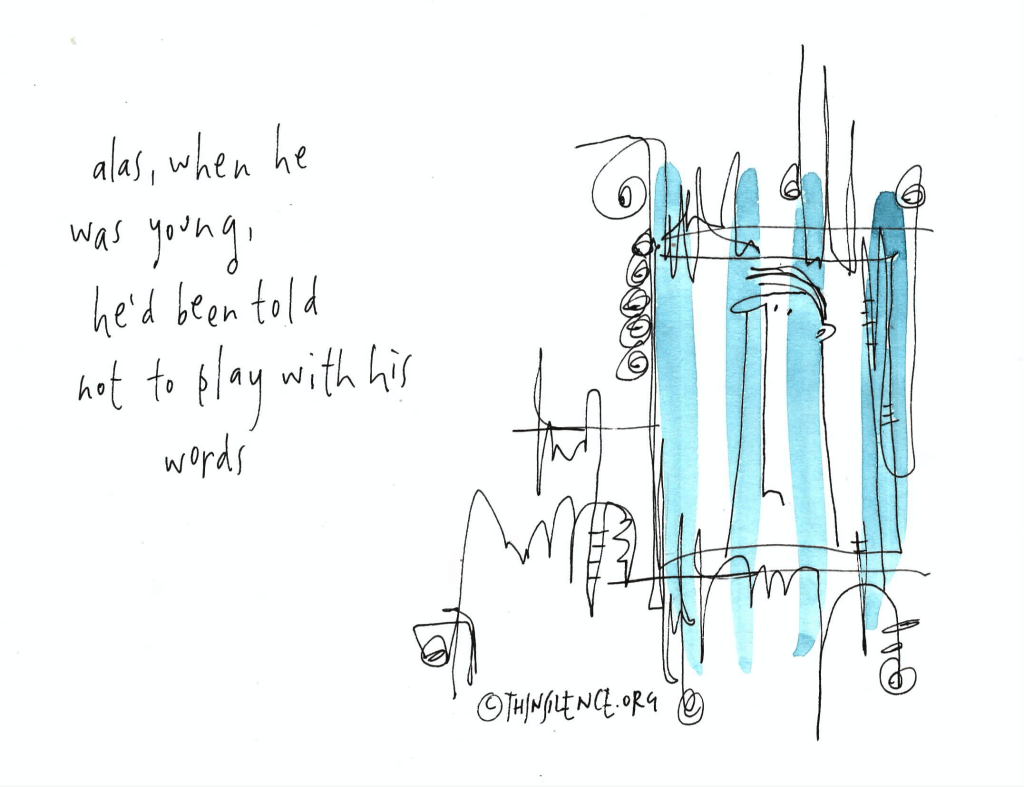 alas, when he
was young,
he'd been told
not to play with his
words
©THINSILENCE.ORG